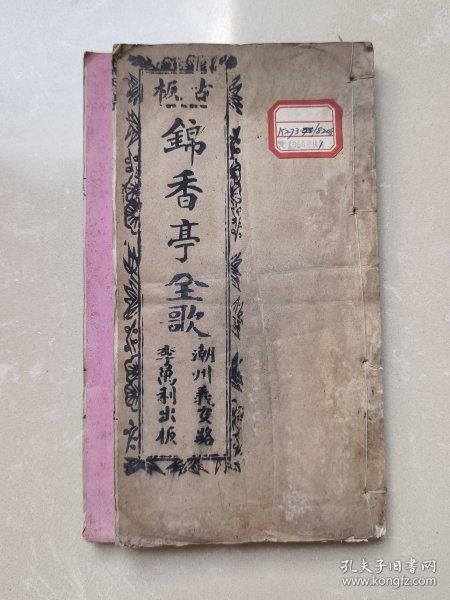 古板
錦香亭全歌
潮州義安路
李萬利出板
孔夫子旧书网
www.kongfz.com